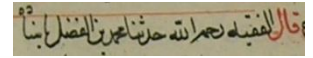 قال الفقيه رحمه الله حدثنا محمد بن الفضل باسناده